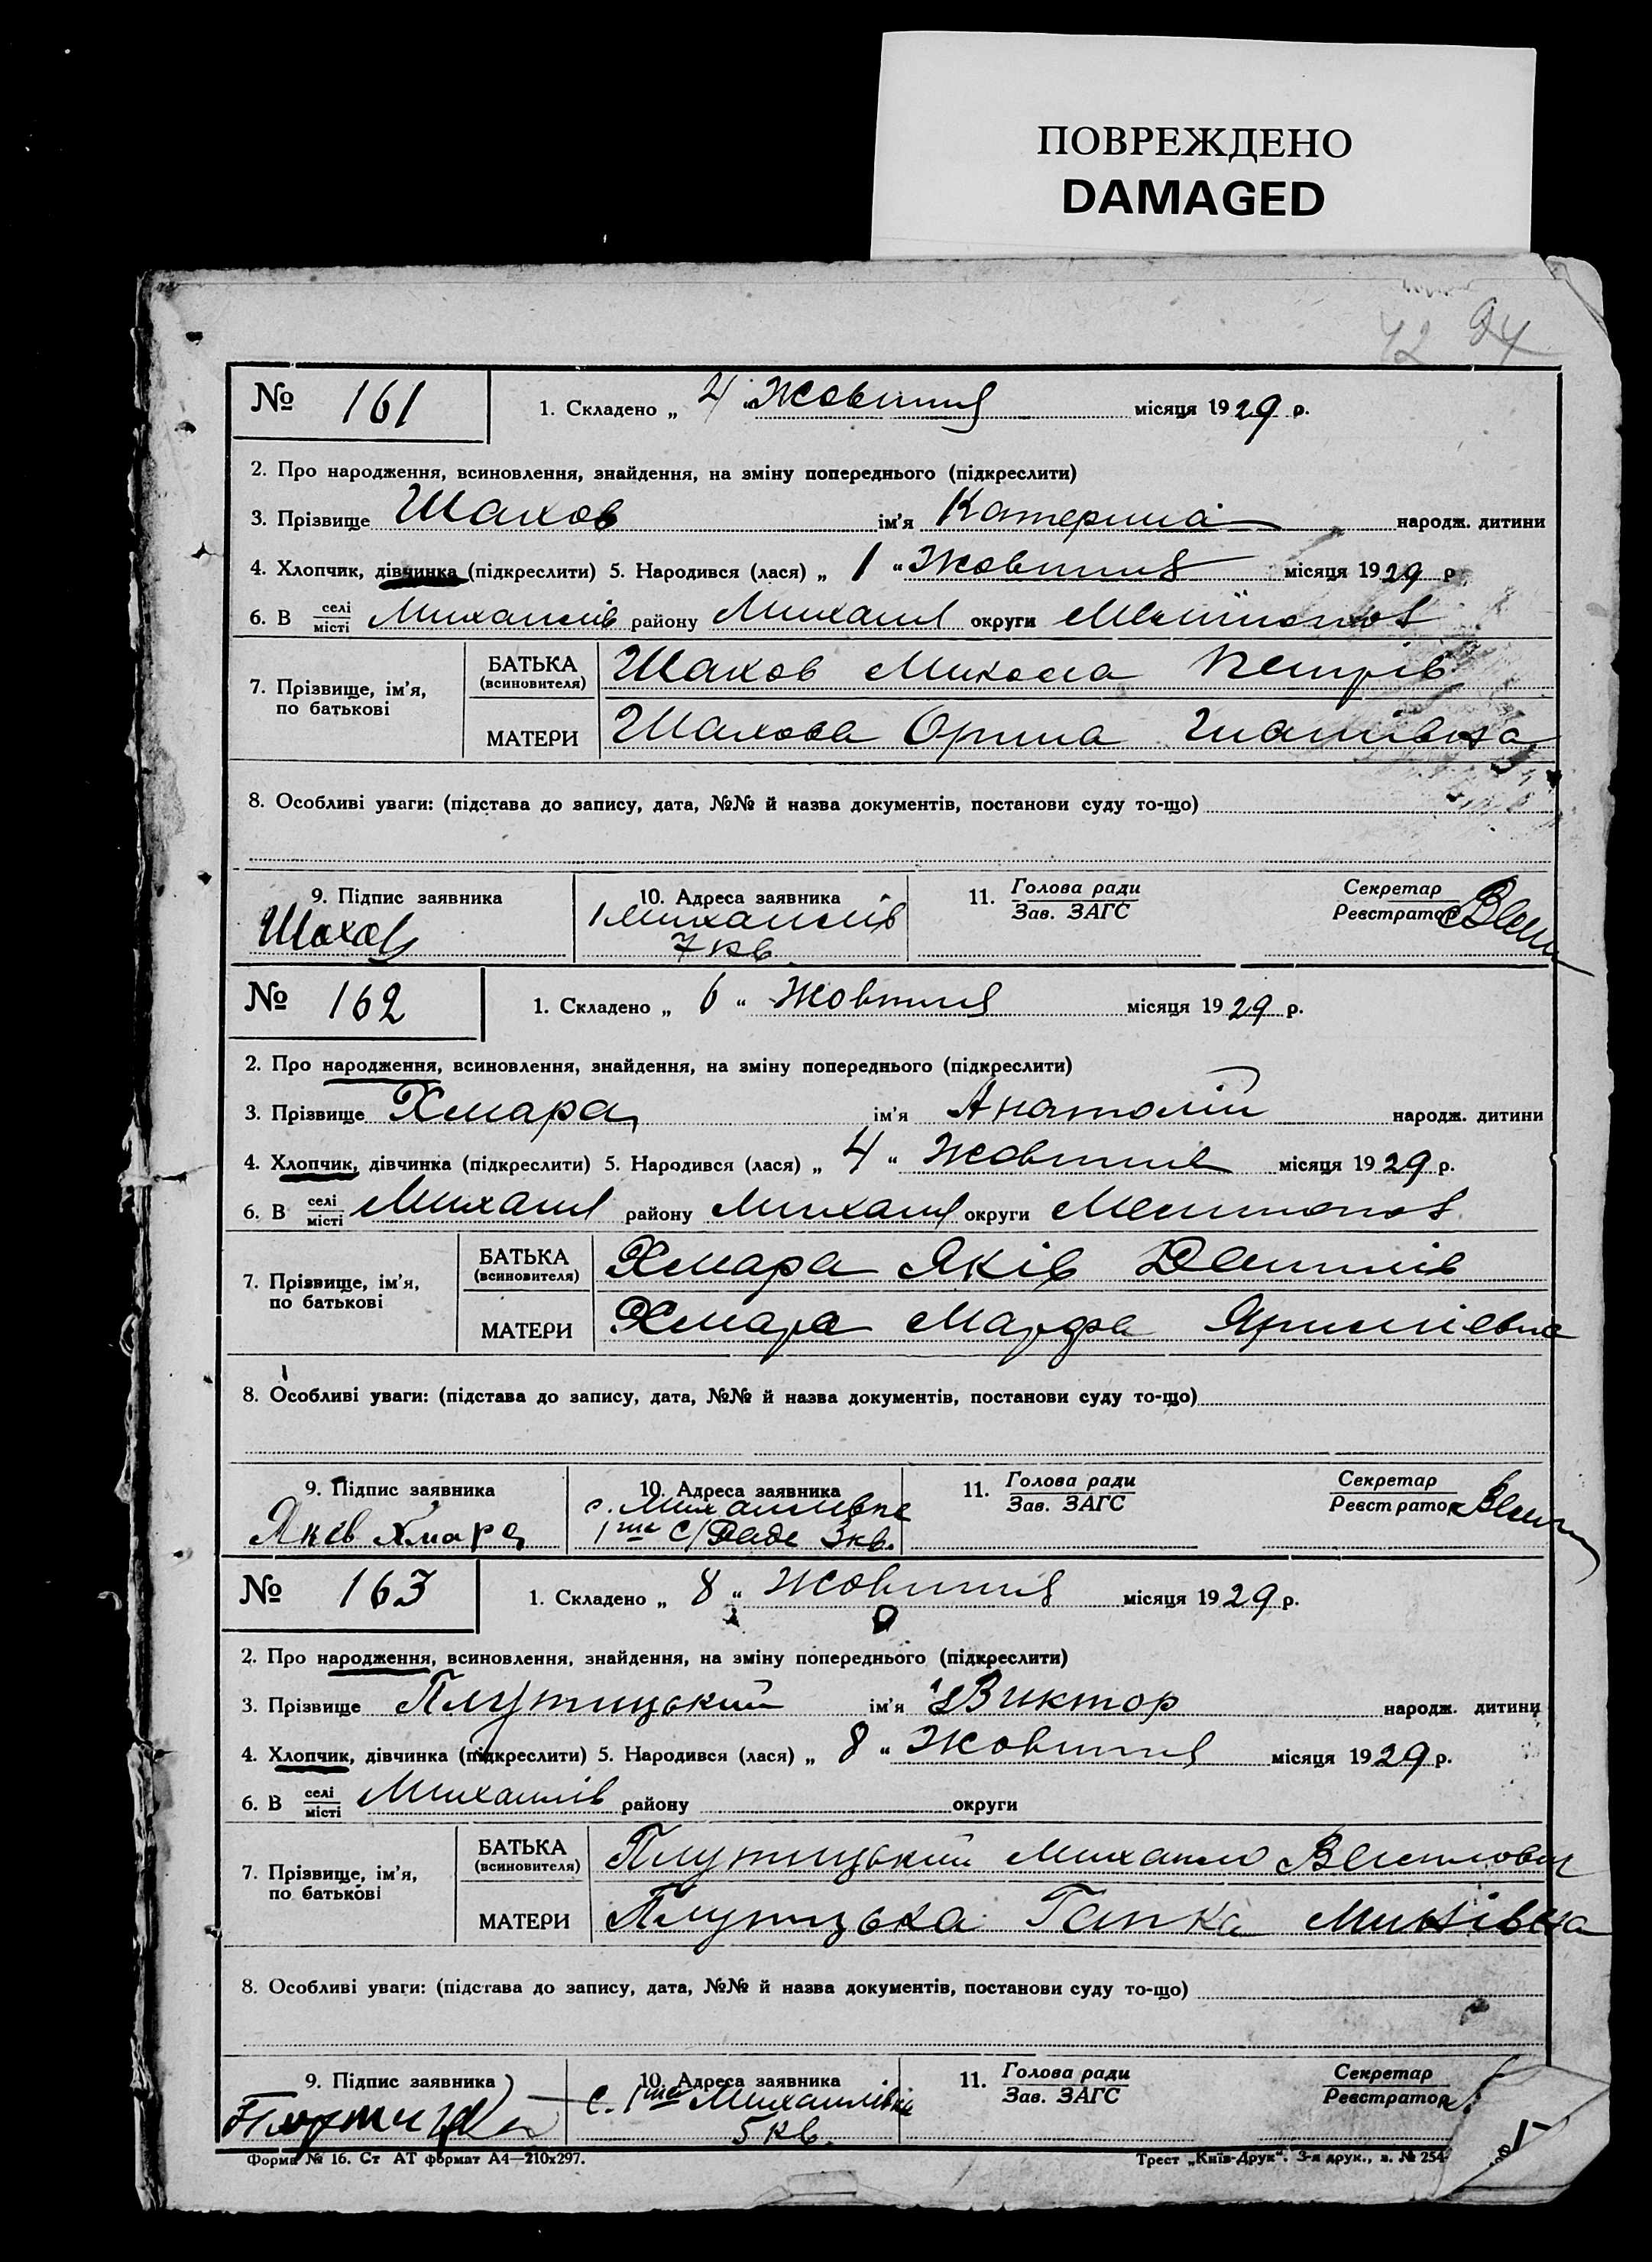 ПОВРЕЖДЕНО
DAMAGED
42 94
№ 161 1. Складено „ 4 “ Жовтня місяця 1929 р.
2. Про народження, всиновлення, знайдення, на зміну попереднього (підкреслити)
3. Прізвище Шахов ім'я Катерина народж. дитини
4. Хлопчик, дівчинка (підкреслити) 5. Народився (лася) „ 1 “ Жовтня місяця 1929 р.
6. В селі місті Михайлів району Михайл округи Меліітопол
7. Прізвище, ім'я, по батькові
БАТЬКА (всиновителя) Шахов Микола Петрів
МАТЕРИ Шахова Орина
8. Особливі уваги: (підстава до запису, дата, №№ й назва документів, постанови суду то-що)
9. Підпис заявника 10. Адреса заявника 11. Голова ради Зав. ЗАГС Секретар Реєстратор
Шахов 1 Михайлів
7 кв.
№ 162 1. Складено „ 6 “ Жовтня місяця 1929 р.
2. Про народження, всиновлення, знайдення, на зміну попереднього (підкреслити)
3. Прізвище Хмара ім'я Анатолій народж. дитини
4. Хлопчик, дівчинка (підкреслити) 5. Народився (лася) „ 4 “ Жовтня місяця 1929 р.
6. В селі місті Михайл району Михайл округи Мелитопол
7. Прізвище, ім'я, по батькові
БАТЬКА (всиновителя) Хмара Яків Данилів
МАТЕРИ Хмара Марфа
8. Особливі уваги: (підстава до запису, дата, №№ й назва документів, постанови суду то-що)
9. Підпис заявника 10. Адреса заявника 11. Голова ради Зав. ЗАГС Секретар Реєстратор
Яков Хмара с. Михайлівка
1ша С/Рада 3 кв.
№ 163 1. Складено „ 8 “ Жовтня місяця 1929 р.
2. Про народження, всиновлення, знайдення, на зміну попереднього (підкреслити)
3. Прізвище Плутицький ім'я Виктор народж. дитини
4. Хлопчик, дівчинка (підкреслити) 5. Народився (лася) „ 8 “ Жовтня місяця 1929 р.
6. В селі місті Михайлів району округи
7. Прізвище, ім'я, по батькові
БАТЬКА (всиновителя) Плутицький Михайло Васильович
МАТЕРИ Плутицька Гапка Минівна
8. Особливі уваги: (підстава до запису, дата, №№ й назва документів, постанови суду то-що)
9. Підпис заявника 10. Адреса заявника 11. Голова ради Зав. ЗАГС Секретар Реєстратор
с. 1ша Михайлівка
5 кв.
Форма № 16. Ст АТ формат А4—210х297. Трест „Київ-Друк“. 3-я друк., з. № 254